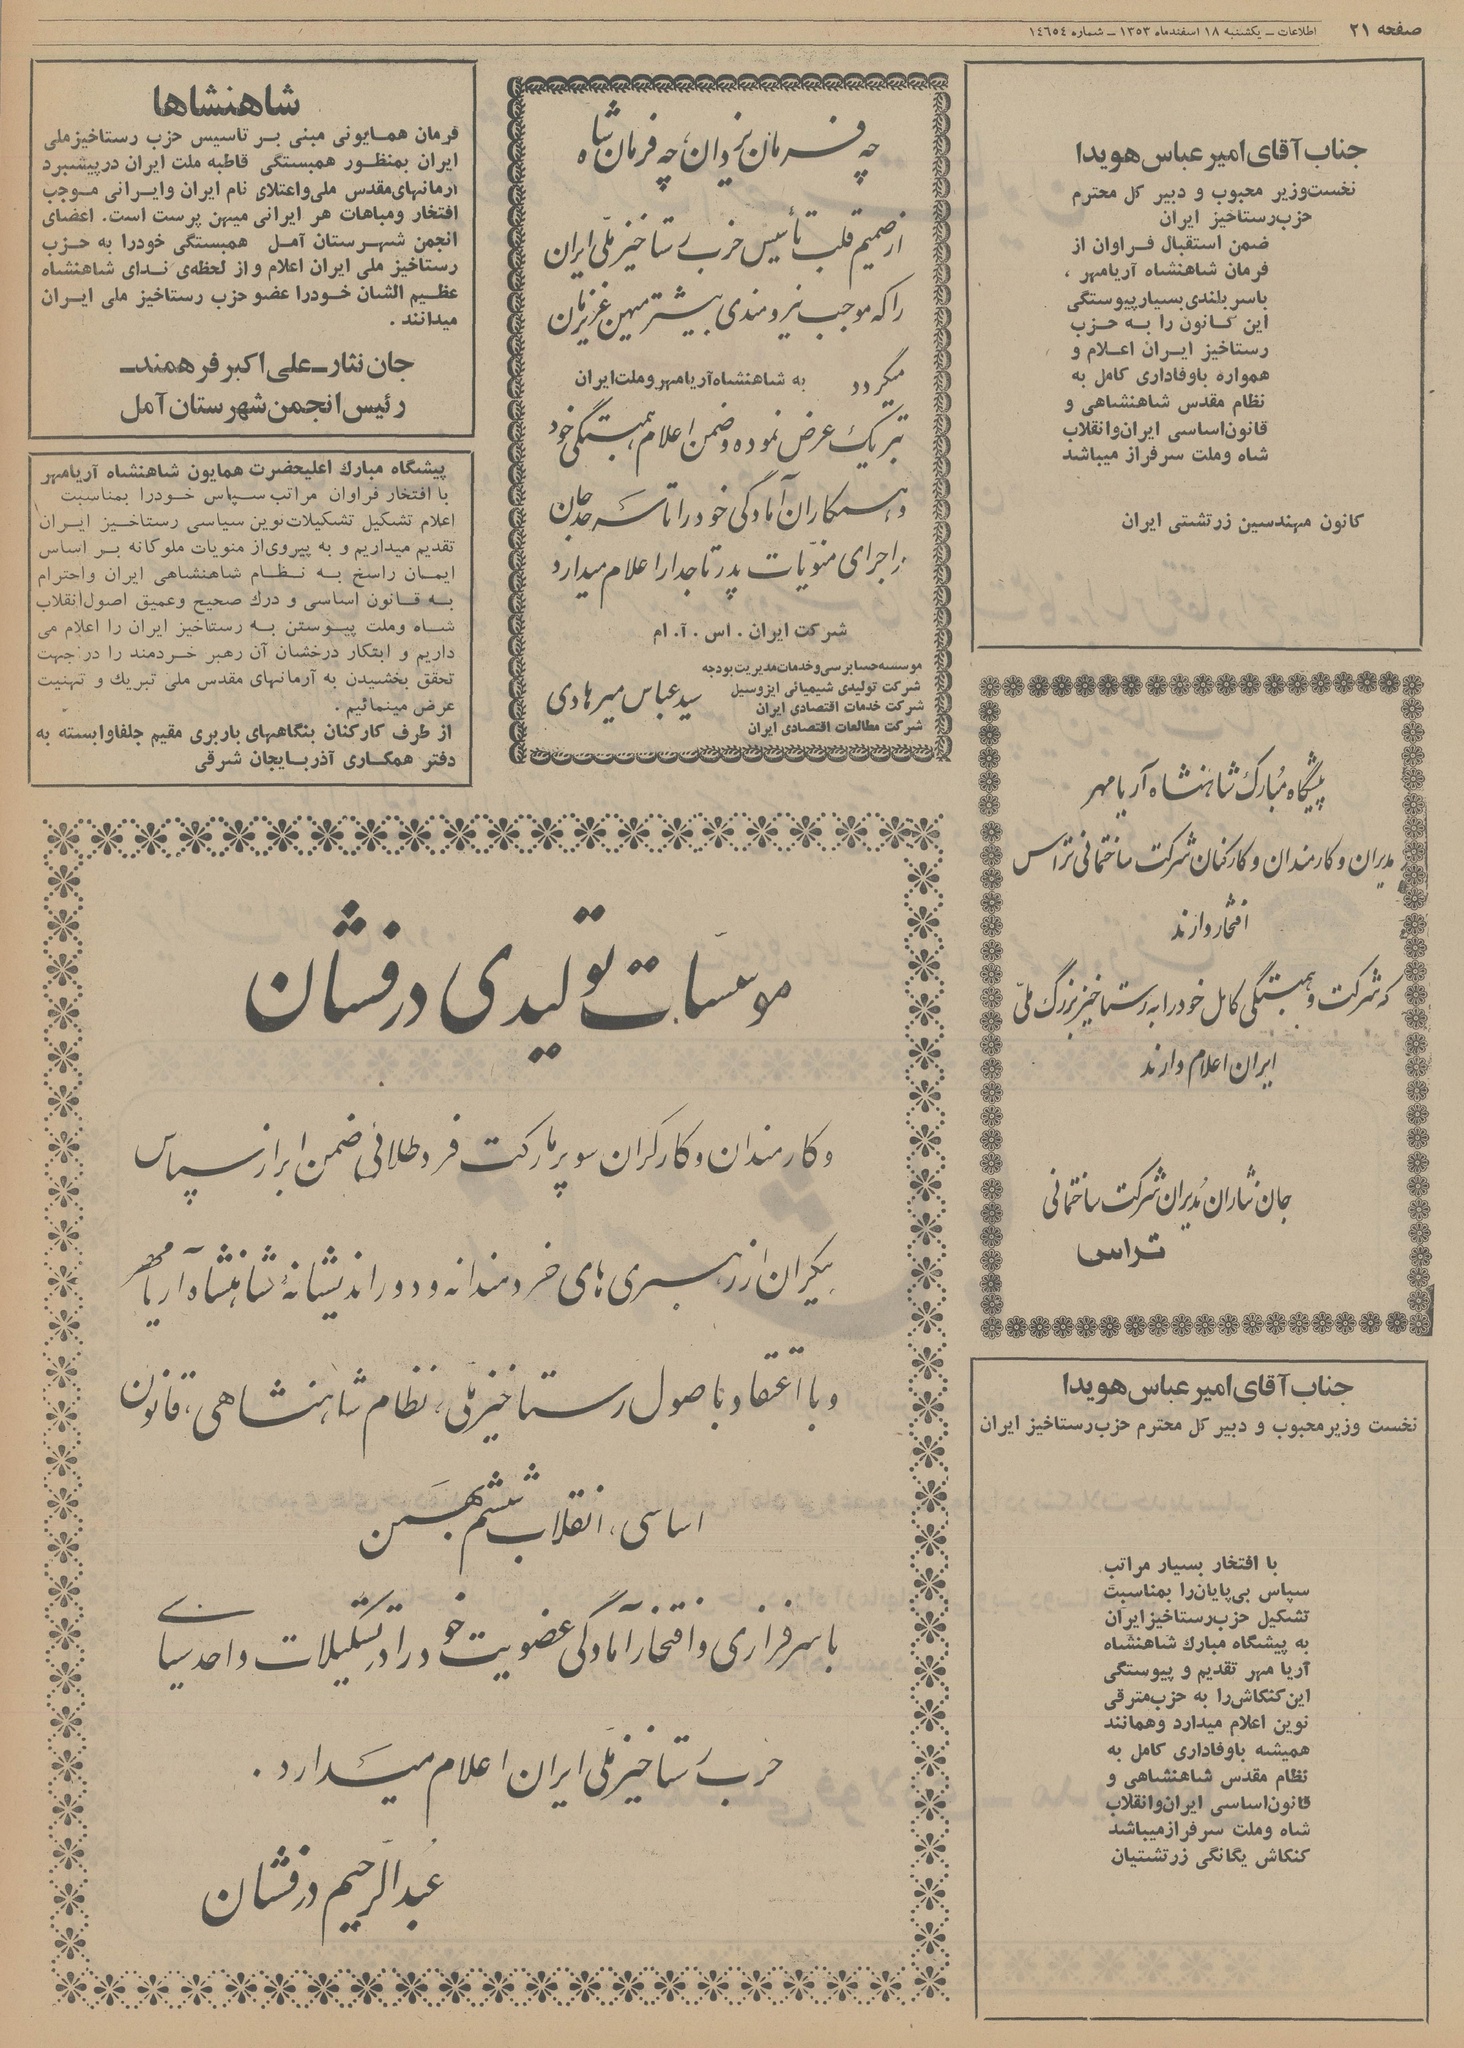 صفحه ۲۱
اطلاعات ــ یکشنبه ۱۸ اسفندماه ۱۳۵۳ ــ شماره ۱۴۶۵۴
جناب آقای امیر عباس هویدا
نخست‌وزیر محبوب و دبیر کل محترم
حزب رستاخیز ایران
ضمن استقبال فراوان از
فرمان شاهنشاه آریامهر ،
باسربلندی بسیار پیوستگی
این کانون را به حزب
رستاخیز ایران اعلام و
همواره باوفاداری کامل به
نظام مقدس شاهنشاهی و
قانون‌اساسی ایران‌وانقلاب
شاه وملت سرفراز میباشد
کانون مهندسین زرتشتی ایران
پیشگاه مبارک شاهنشاه آریامهر
مدیران و کارمندان و کارکنان شرکت ساختمانی تراس
افتخار دارند
که شرکت و همبستگی کامل خود را به رستاخیز بزرگ ملی
ایران اعلام دارند
جان نثاران مدیران شرکت ساختمانی
تراس
جناب آقای امیر عباس هویدا
نخست وزیر محبوب و دبیر کل محترم حزب رستاخیز ایران
با افتخار بسیار مراتب
سپاس بی‌پایان‌را بمناسبت
تشکیل حزب رستاخیز ایران
به پیشگاه مبارك شاهنشاه
آریا مهر تقدیم و پیوستگی
این‌کنکاش‌را به حزب‌مترقی
نوین اعلام میدارد وهمانند
همیشه باوفاداری کامل به
نظام مقدس شاهنشاهی و
قانون‌اساسی ایران‌وانقلاب
شاه وملت سرفرازمیباشد
کنکاش یگانگی زرتشتیان
چه فرمان یزدان، چه فرمان شاه
از صمیم قلب تأسیس حزب رستاخیز ملّی ایران
را که موجب نیرومندی بیشتر میهن عزیزمان
میگردد به شاهنشاه آریامهر و ملت ایران
تبریک عرض نموده و ضمن اعلام همبستگی خود
و همکاران آمادگی خود را تا سرحد جان
در اجرای منویّات پدر تاجدار اعلام میدارد
شرکت ایران . اس . آ. ام
موسسه حسابرسی و خدمات مدیریت بودجه
شرکت تولیدی شیمیائی ایزوسیل
شرکت خدمات اقتصادی ایران
شرکت مطالعات اقتصادی ایران
سید عباس میرهادی
شاهنشاها
فرمان همایونی مبنی بر تاسیس حزب رستاخیزملی
ایران بمنظور همبستگی قاطبه ملت ایران درپیشبرد
آرمانهای‌مقدس ملی‌واعتلای نام ایران وایرانی موجب
افتخار ومباهات هر ایرانی میهن پرست است. اعضای
انجمن شهرستان آمل همبستگی خودرا به حزب
رستاخیز ملی ایران اعلام و از لحظه‌ی ندای شاهنشاه
عظیم الشان خودرا عضو حزب رستاخیز ملی ایران
میدانند .
جان نثار ــ علی اکبر فرهمند ــ
رئیس انجمن شهرستان آمل
پیشگاه مبارك اعلیحضرت همایون شاهنشاه آریامهر
با افتخار فراوان مراتب سپاس خودرا بمناسبت
اعلام تشکیل تشکیلات نوین سیاسی رستاخیز ایران
تقدیم میداریم و به پیروی‌از منویات ملوکانه بر اساس
ایمان راسخ به نظام شاهنشاهی ایران واحترام
به قانون اساسی و درك صحیح وعمیق اصول‌انقلاب
شاه وملت پیوستن به رستاخیز ایران را اعلام می
داریم و ابتکار درخشان آن رهبر خردمند را در جهت
تحقق بخشیدن به آرمانهای مقدس ملی تبریك و تهنیت
عرض مینمائیم .
از طرف کارکنان بنگاههای باربری مقیم جلفاوابسته به
دفتر همکاری آذربایجان شرقی
موسسات تولیدی درفشان
و کارمندان و کارگران سوپرمارکت فرد طلائی ضمن ابراز سپاس
بیکران از رهبری های خردمندانه و دوراندیشانهٔ شاهنشاه آریامهر
و با اعتقاد باصول رستاخیز ملی ، نظام شاهنشاهی ، قانون
اساسی ، انقلاب ششم بهمن
با سرفرازی و افتخار آمادگی عضویت خود را در تشکیلات واحد سیاسی
حزب رستاخیز ملی ایران اعلام میدارد .
عبدالرحیم درفشان